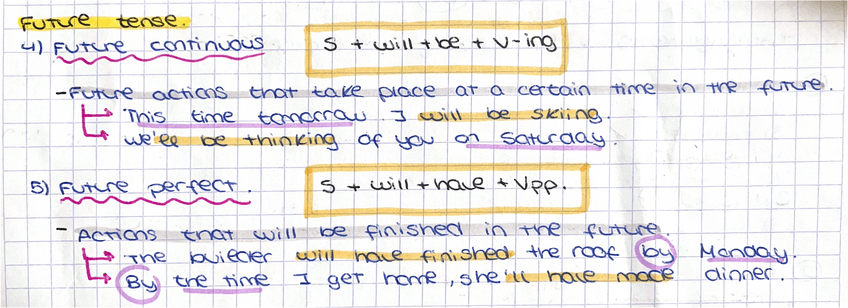 Future tense.
4) Future continuous S + will + be + V-ing
- Future actions that take place at a certain time in the future.
This time tomorrow I will be skiing.
we'll be thinking of you on Saturday.
5) Future perfect. S + will + have + Vpp.
- Actions that will be finished in the future.
The builder will have finished the roof by Monday.
By the time I get home, she'll have made dinner.